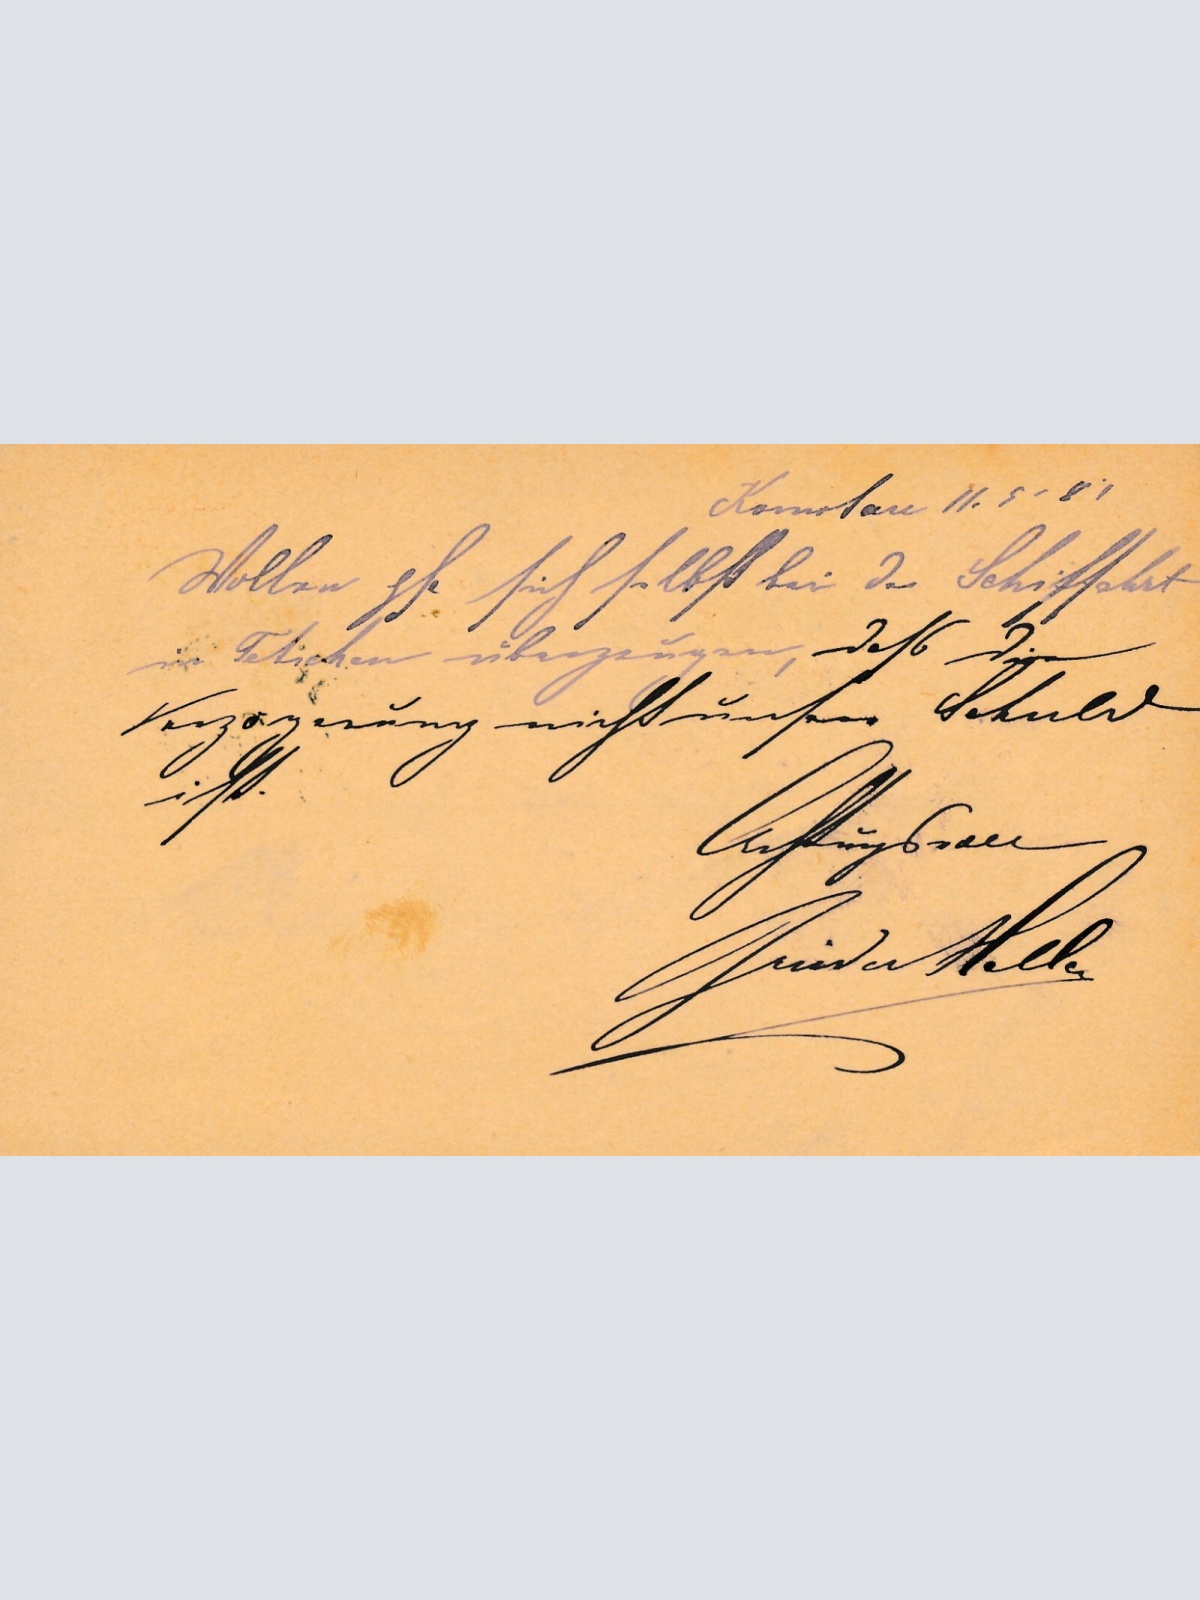 Komotau 11. 5. 81
Wollen gfl sich selbst bei der Schiffahrt
in Tetschen überzeugen, daß die
Verzögerung nicht unsere Schuld
ist.
Achtungsvoll
Heller